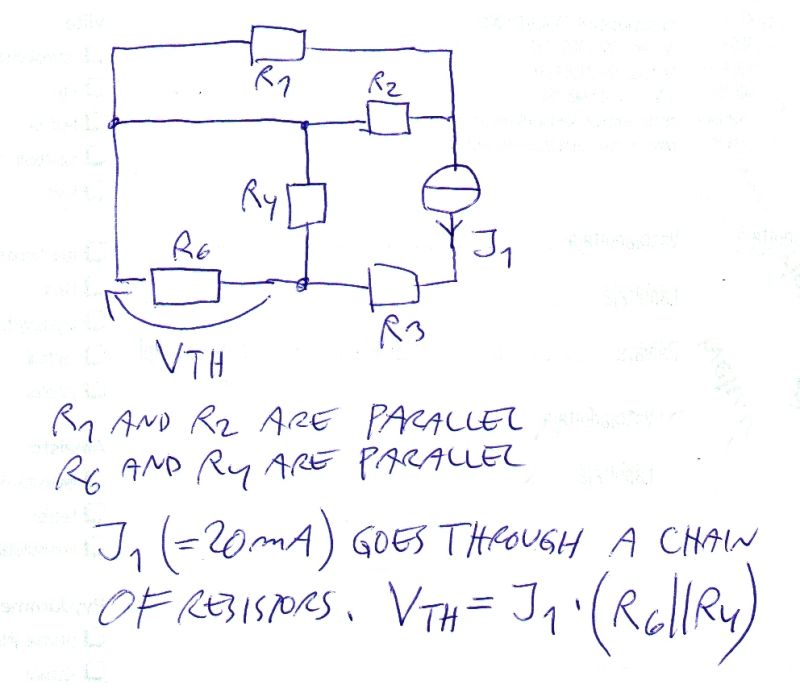 R1
R2
R4
J1
R6
R3
VTH
R1 AND R2 ARE PARALLEL
R6 AND R4 ARE PARALLEL
J1 (=20mA) GOES THROUGH A CHAIN
OF RESISTORS. VTH = J1 · (R6||R4)